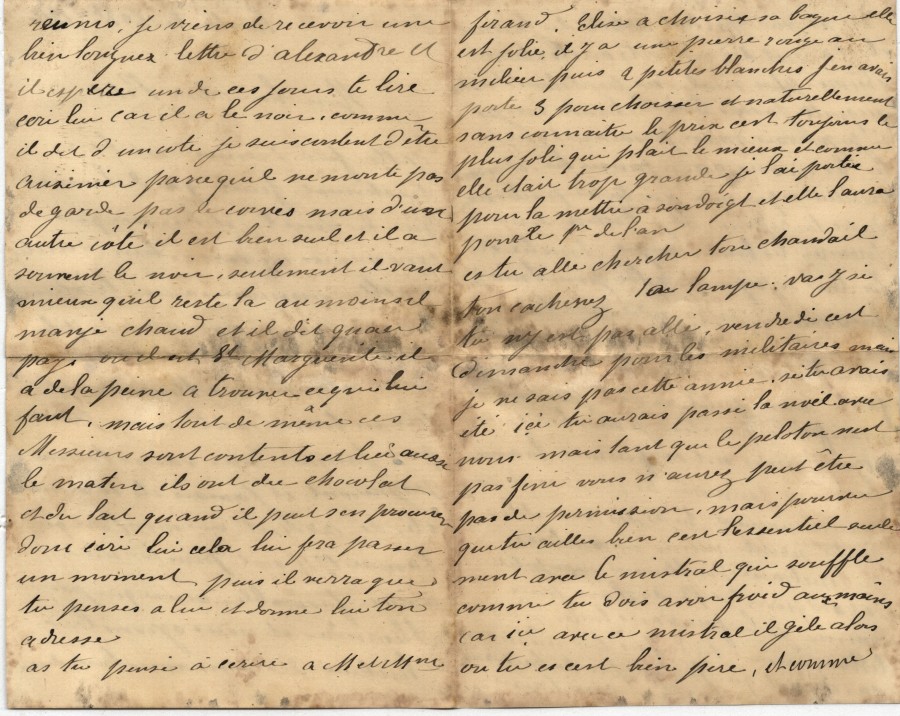 réunis, je viens de recevoir une
bien longuez lettre d'alexandre et
il espère un de ces jours te lire
ecri lui car il a le noir, comme
il dit d'un coté je suis content d'être
cuisinier parce qu'il ne monte pas
de garde pas de corvés mais d'un
autre côté il est bien seul et il a
souvent le noir, seulement il vaut
mieux qu'il reste la au moins il
manje chaud et il dit quau
pays ou il est St Marguerite il
a de la peine a trouver ce qui lui
faut, mais tout de même ces
Messieurs sont contents et lui aussi
le matin ils ont du chocolat
et du lait quand il peut s'en procurer
donc ecri lui cela lui fra passer
un moment puis il verra que
tu penses a lui et donne lui ton
adresse
as tu pensé à écrire a M et Mme
firand. Elise a choisi sa bague elle
est jolie, il y a une pierre rouge au
milieu puis 2 petites blanches j'en avais
porté 3 pour choisir et naturellement
sans connaitre le prix c'est toujours le
plus joli qui plait le mieux et comme
elle était trop grande je l'ai portée
pour la mettre à son doigt et elle l'aura
pour le 1er de l'an
es tu allé chercher ton chandail
ton cachenez la lampe. vas y si
tu n'y est pas allé, vendredi est
dimanche pour les militaires mais
je ne sais pas cette année, si tu avais
été ici tu aurais passé la noël avec
nous mais tant que le peloton n'est
pas fini vous n'aurez peut être
pas de permission, mais pourvu
que tu ailles bien c'est l'essentiel seule
ment avec le mistral qui souffle
comme tu dois avoir froid aux mains
car ici avec ce mistral il gêle alors
ou tu es c'est bien pire, et comme